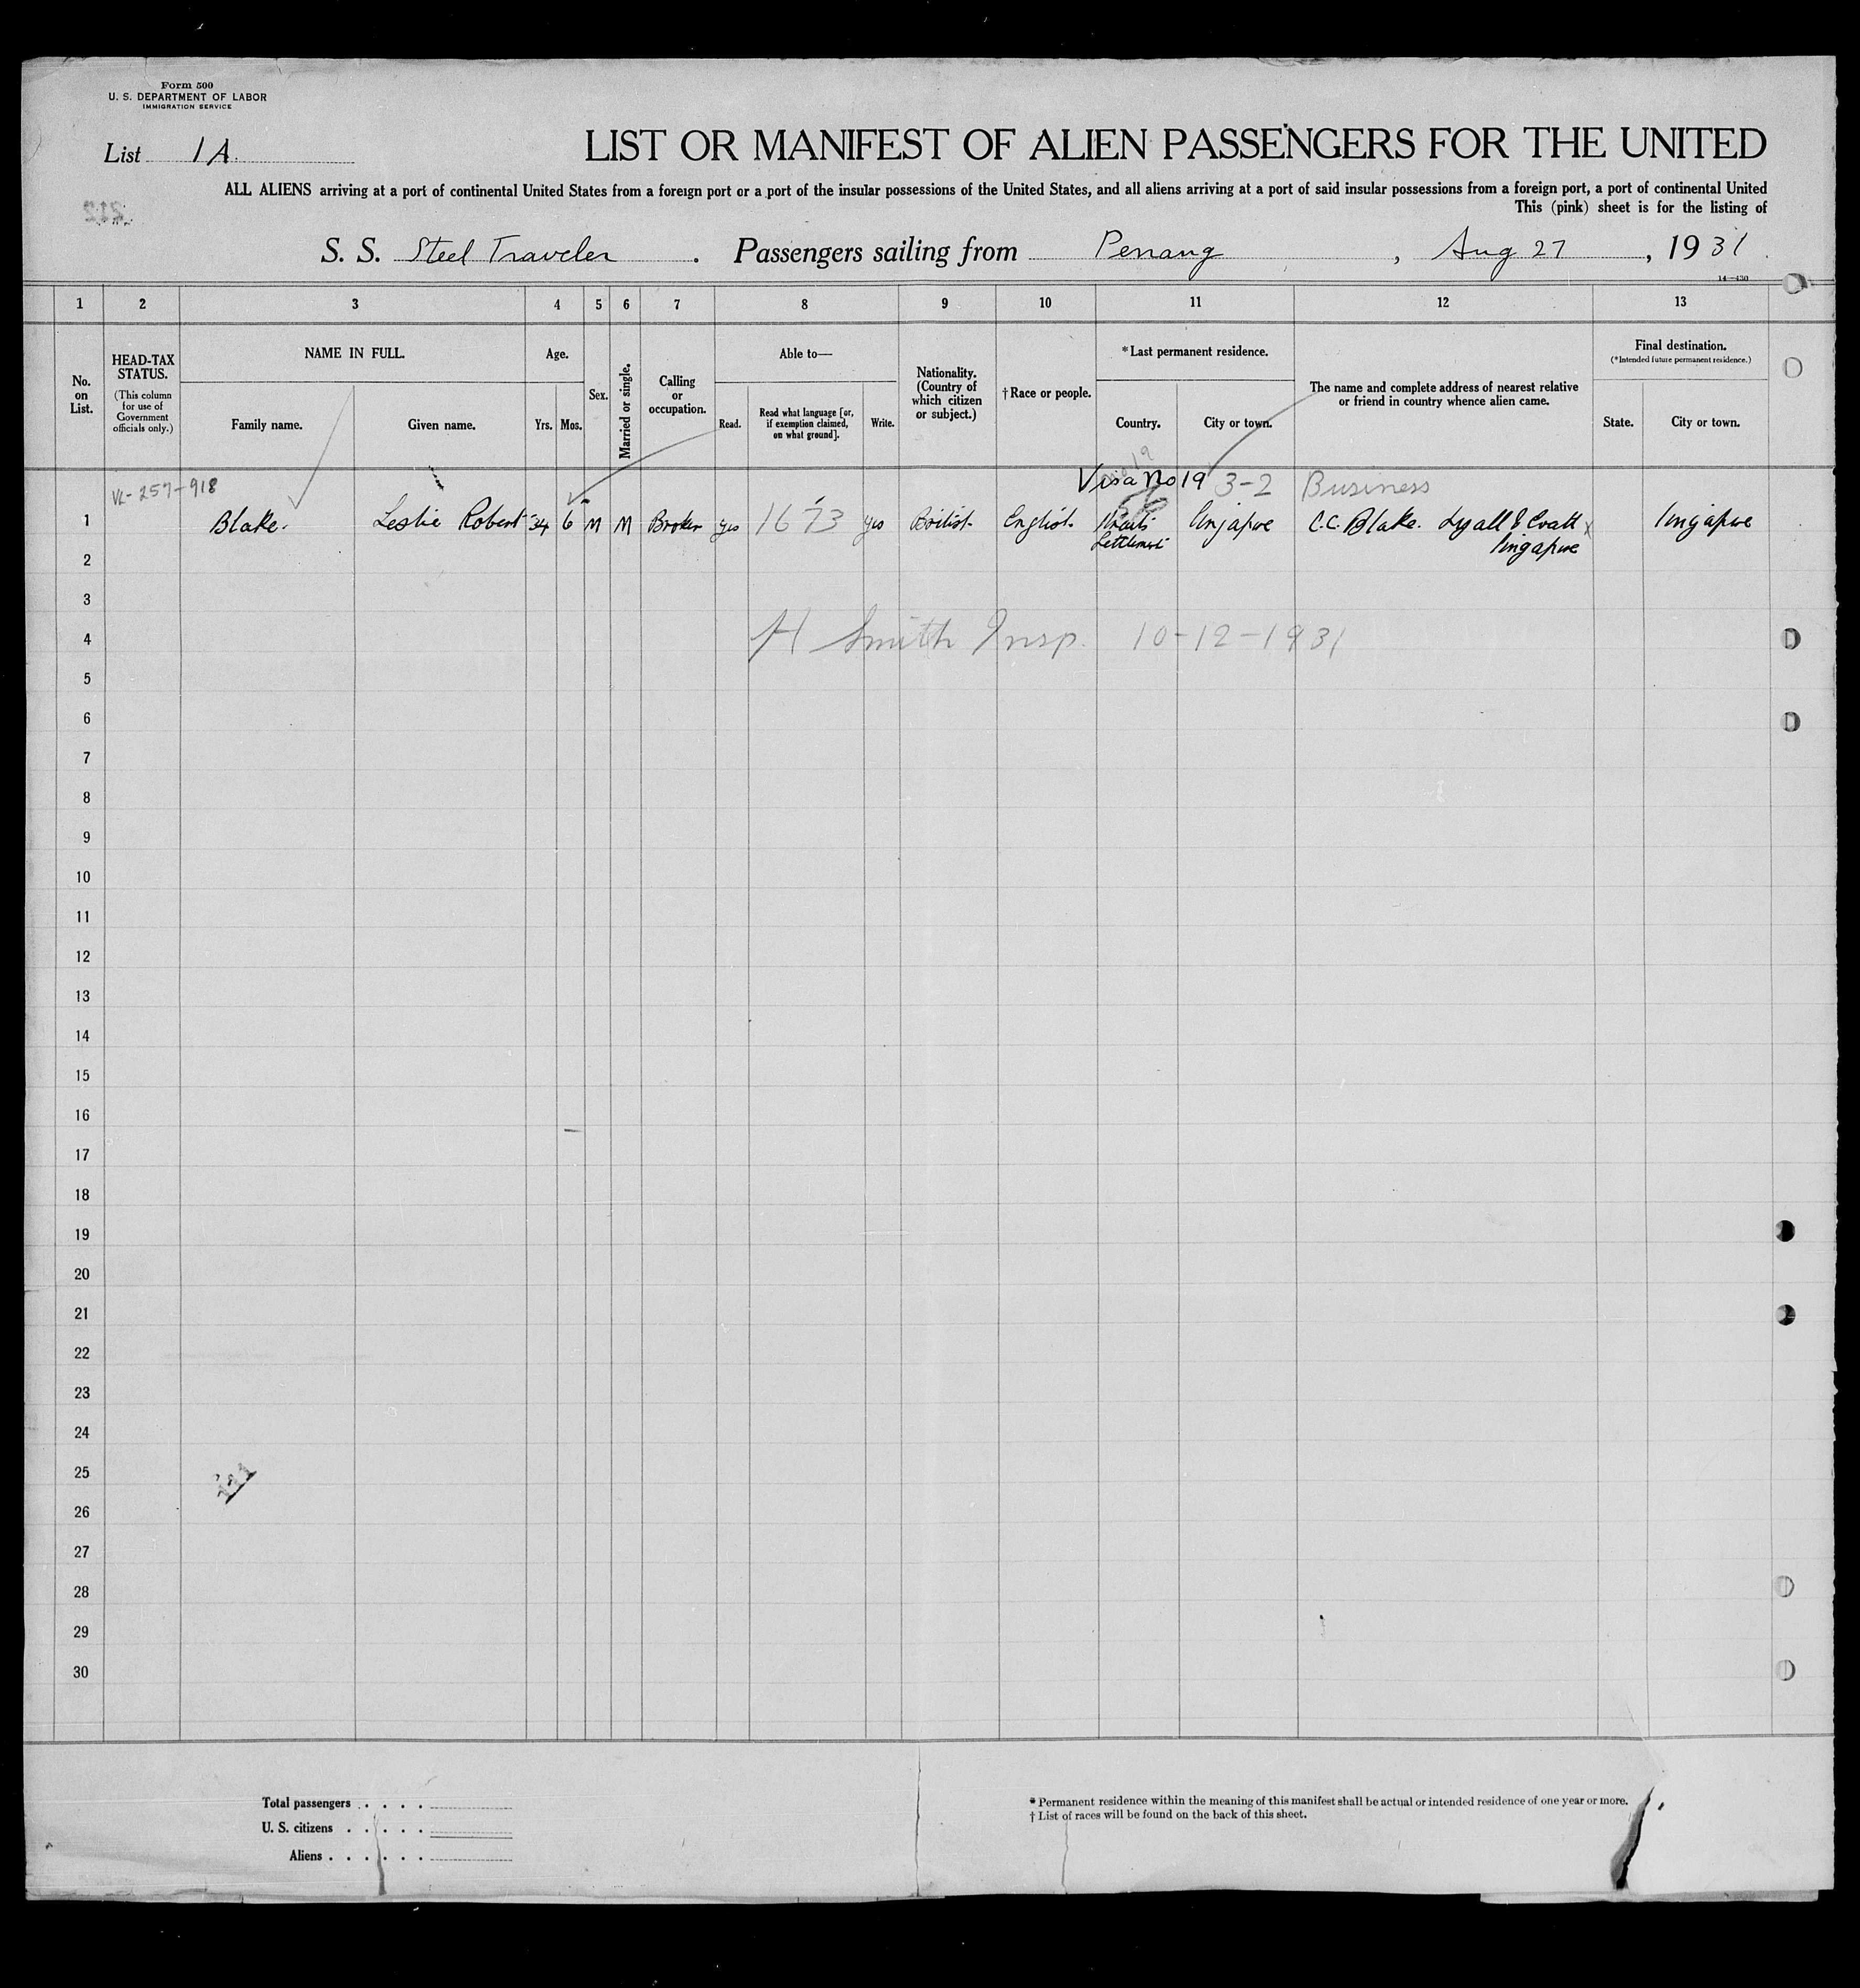 Form 500
U. S. DEPARTMENT OF LABOR
IMMIGRATION SERVICE
List 1A.
LIST OR MANIFEST OF ALIEN PASSENGERS FOR THE UNITED
ALL ALIENS arriving at a port of continental United States from a foreign port or a port of the insular possessions of the United States, and all aliens arriving at a port of said insular possessions from a foreign port, a port of continental United
This (pink) sheet is for the listing of
S. S. Steel Traveler . Passengers sailing from Penang , Aug 27 , 1931
14—430
1 2 3 4 5 6 7 8 9 10 11 12 13
No. on List.
HEAD-TAX STATUS.
(This column for use of Government officials only.)
NAME IN FULL.
Family name.
Given name.
Age.
Yrs. Mos.
Sex.
Married or single.
Calling or occupation.
Able to—
Read.
Read what language [or, if exemption claimed, on what ground].
Write.
Nationality. (Country of which citizen or subject.)
†Race or people.
*Last permanent residence.
Country.
City or town.
The name and complete address of nearest relative or friend in country whence alien came.
Final destination.
(*Intended future permanent residence.)
State.
City or town.
257-918
Visa No 19 3-2 Business
1 Blake. Leslie Robert 34 6 M M Broker yes 1673 yes British English Straits Singapore C.C. Blake. Lyall & Evatt Singapore
Settlements Singapore
2
3
4 H Smith Insp. 10-12-1931
5
6
7
8
9
10
11
12
13
14
15
16
17
18
19
20
21
22
23
24
25
26
27
28
29
30
Total passengers . . . .
U. S. citizens . . . . .
Aliens . . . . . .
* Permanent residence within the meaning of this manifest shall be actual or intended residence of one year or more.
† List of races will be found on the back of this sheet.